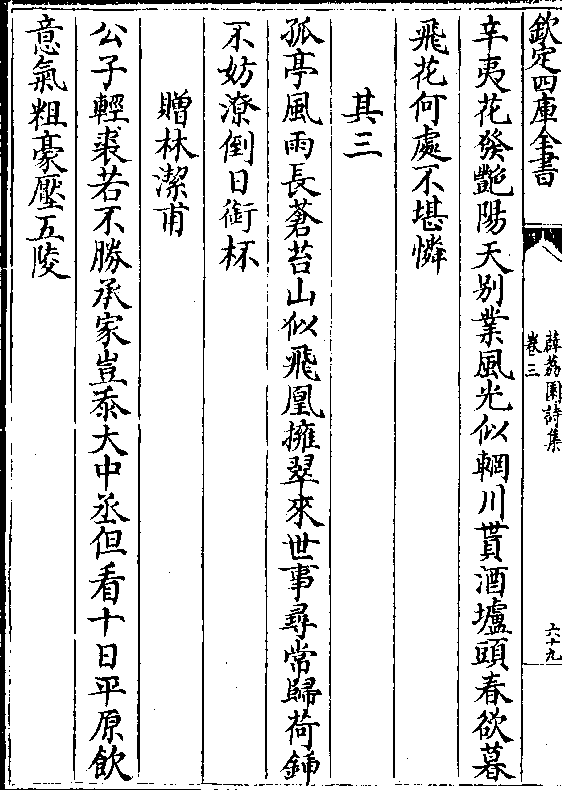 欽定四庫全書
薜荔園詩集
卷三
六十九
辛夷花發艷陽天别業風光似輞川貰酒壚頭春欲暮
飛花何處不堪憐
其三
孤亭風雨長蒼苔山似飛凰擁翠來世事尋常歸荷鍤
不妨潦倒日銜杯
贈林潔甫
公子輕裘若不勝承家豈忝大中丞但看十日平原飲
意氣粗豪壓五陵